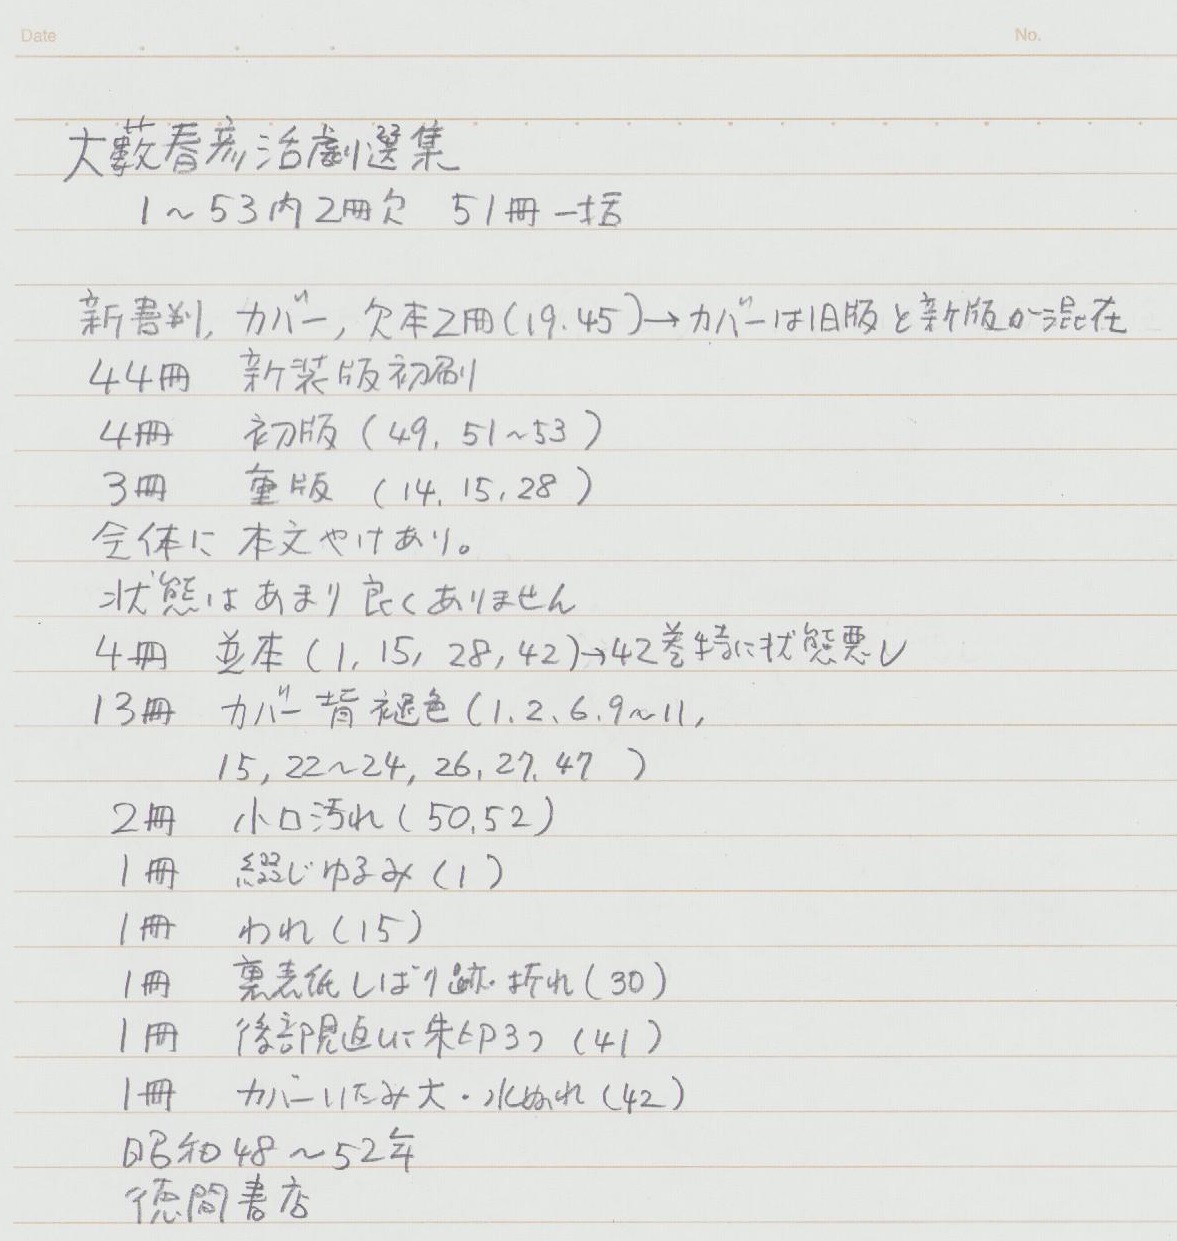 Date
No.
大藪春彦活劇選集
1～53内2冊欠 51冊一括
新書判, カバー, 欠本2冊(19.45)→カバーは旧版と新版が混在
44冊 新装版初刷
4冊 初版(49, 51～53)
3冊 重版(14, 15, 28)
全体に本文やけあり。
状態はあまり良くありません
4冊 並本(1, 15, 28, 42)→42巻特に状態悪し
13冊 カバー背褪色(1.2、6.9～11,
15, 22～24, 26, 27, 47)
2冊 小口汚れ(50,52)
1冊 綴じゆるみ(1)
1冊 われ(15)
1冊 裏表紙しばり跡・折れ(30)
1冊 後部見返しに朱印3つ(41)
1冊 カバーいたみ大・水ぬれ(42)
昭和48～52年
徳間書店